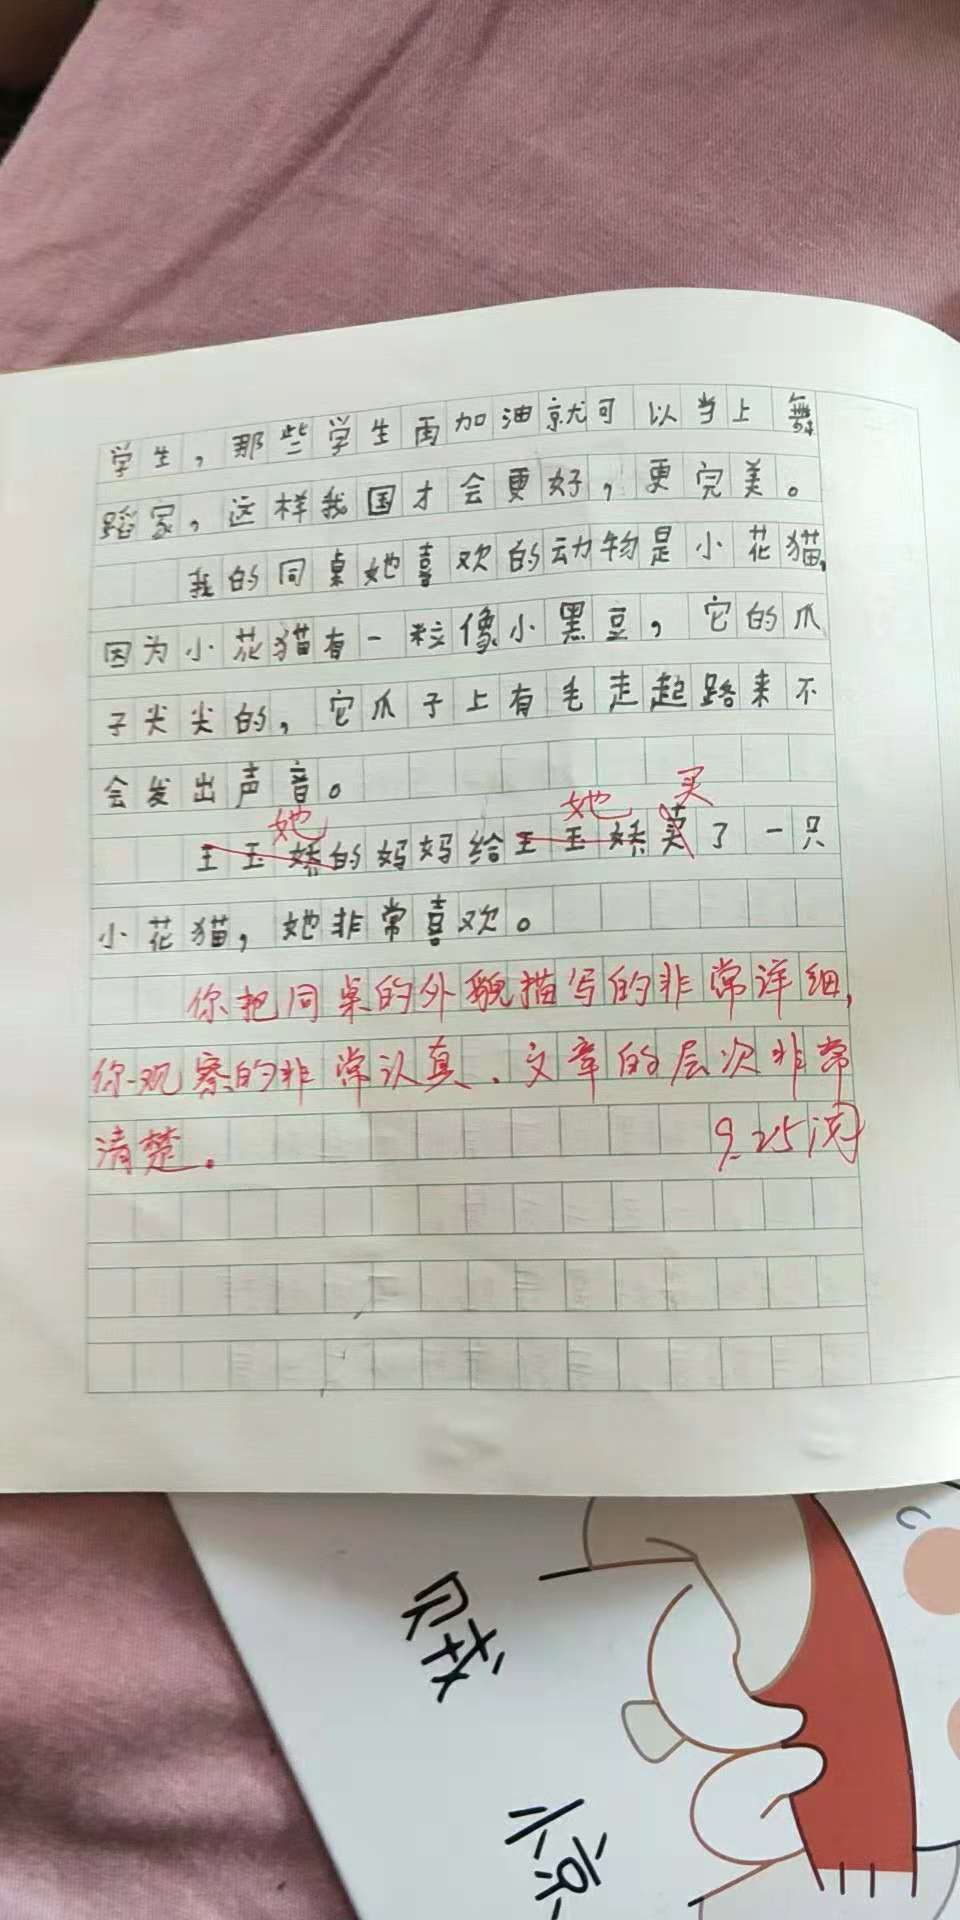 学生，那些学生再加油就可以当上舞
蹈家，这样我国才会更好，更完美。
我的同桌她喜欢的动物是小花猫，
因为小花猫有一粒像小黑豆，它的爪
子尖尖的，它爪子上有毛走起路来不
会发出声音。
她 她 买
王玉娇的妈妈给王玉娇卖了一只
小花猫，她非常喜欢。
你把同桌的外貌描写的非常详细，
你观察的非常认真、文章的层次非常
清楚。 9.25